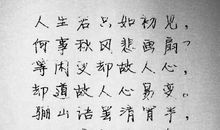 人生若只如初见，
何事秋风悲画扇？
等闲变却故人心，
却道故人心易变。
骊山语罢清宵半，